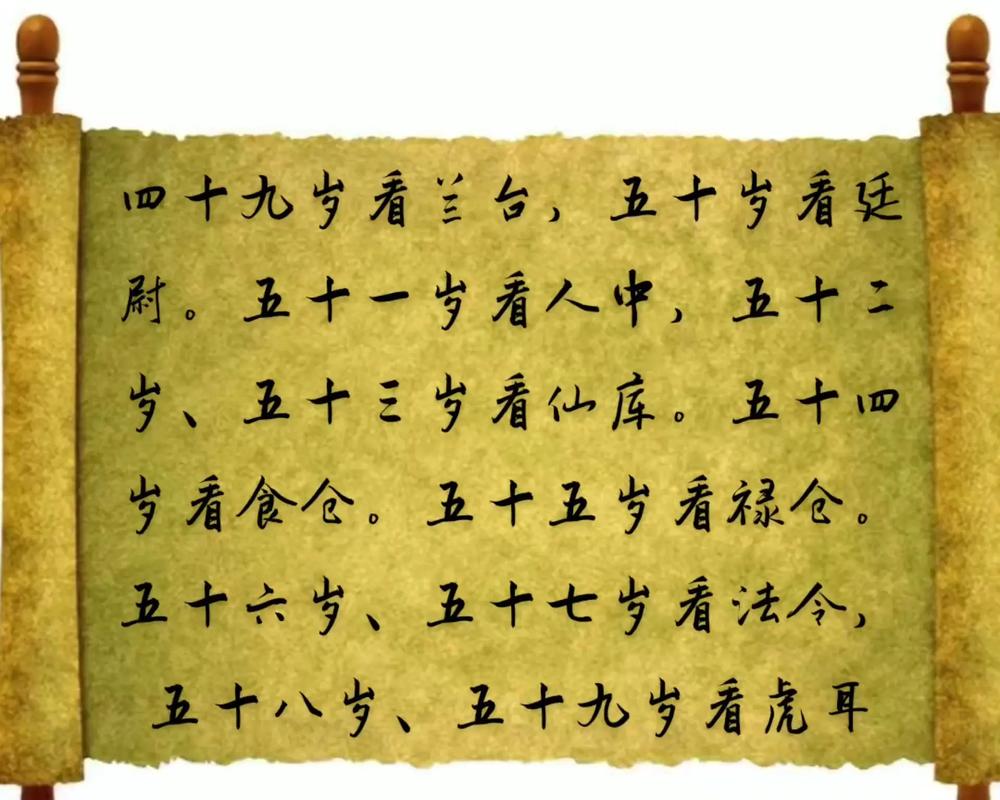 四十九岁看兰台，五十岁看廷
尉。五十一岁看人中，五十二
岁、五十三岁看仙库。五十四
岁看食仓。五十五岁看禄仓。
五十六岁、五十七岁看法令，
五十八岁、五十九岁看虎耳